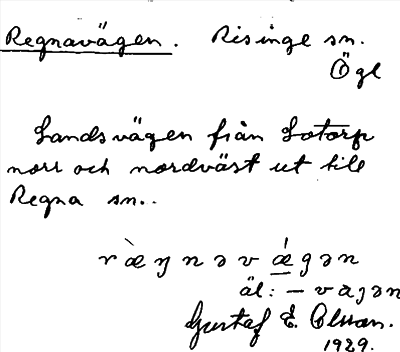 Regnavägen. Risinge sn.
Ögl
Landsvägen från Lotorp
norr och nordväst ut till
Regna sn..
ræŋnəvǽgən
äl: – vagən
Gustaf E. Olsson.
1929.